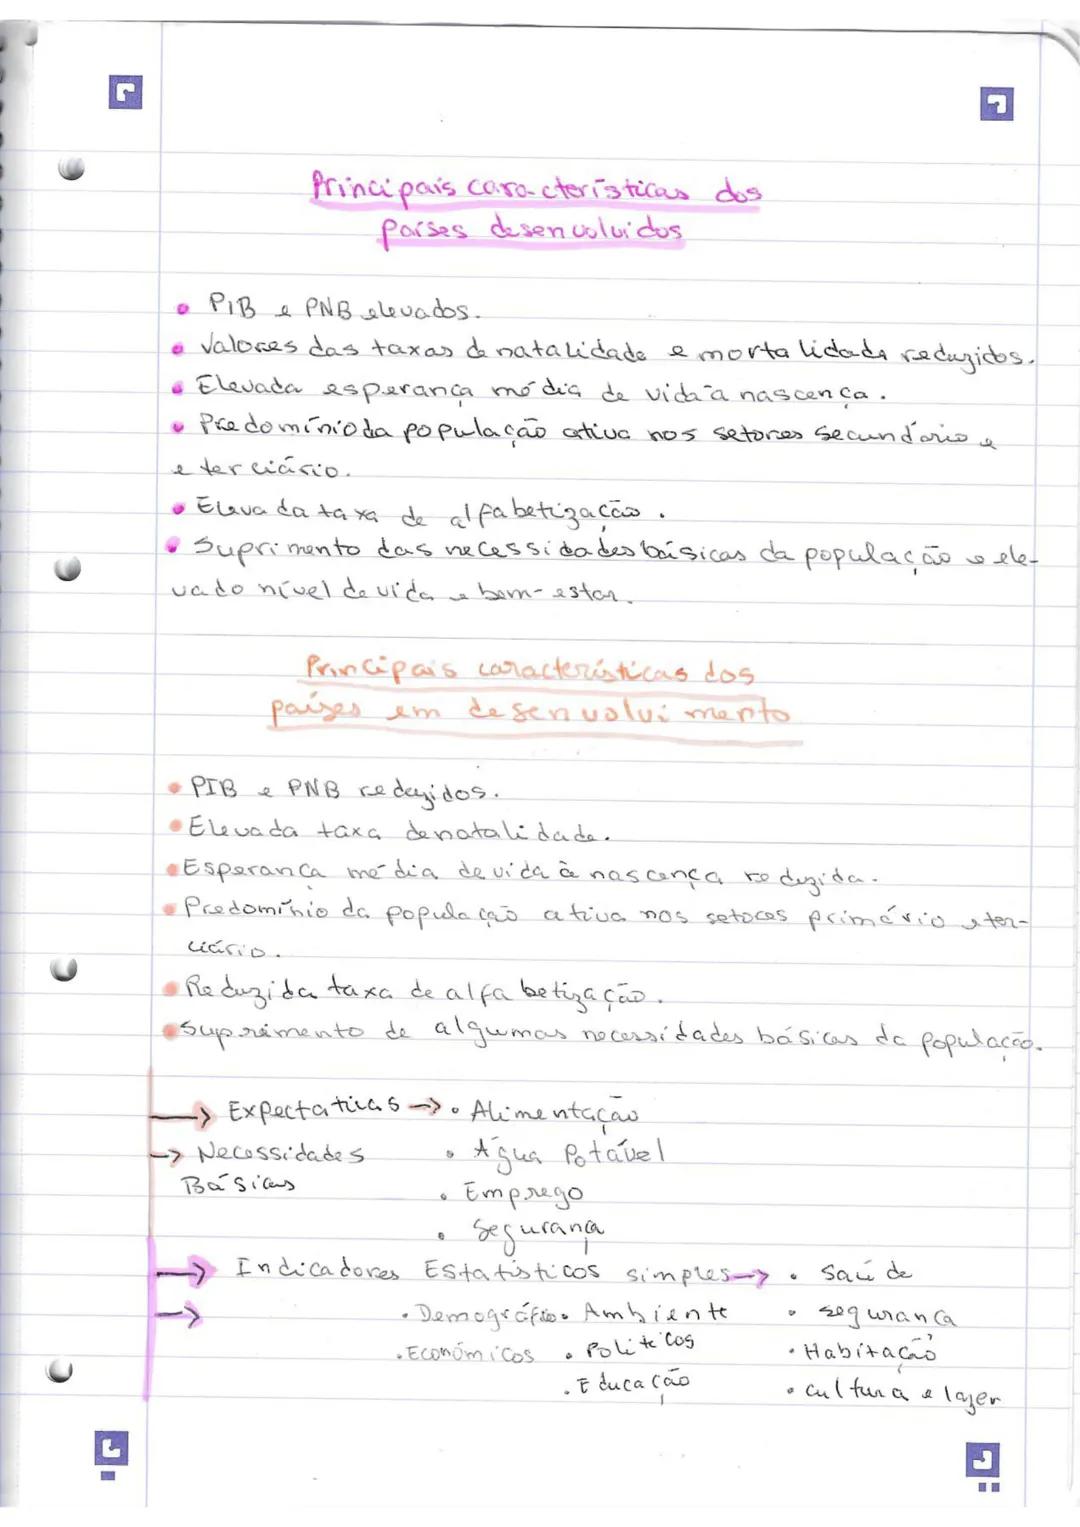 Principais características dos
países desenvolvidos
• PIB e PNB elevados.
• Valores das taxas de natalidade e mortalidade reduzidos.
• Elevada esperança média de vida à nascença.
• Predomínio da população ativa nos setores secundário e
e terciário.
• Elevada taxa de alfabetização.
• Suprimento das necessidades básicas da população e ele-
vado nível de vida e bem-estar.
Principais características dos
países em desenvolvimento
• PIB e PNB reduzidos.
• Elevada taxa de natalidade.
• Esperança média de vida à nascença reduzida.
• Predomínio da população ativa nos setores primário e ter-
ciário.
• Reduzida taxa de alfabetização.
• Suprimento de algumas necessidades básicas da população.
→ Expectativas → • Alimentação
→ Necessidades • Água Potável
Básicas • Emprego
• Segurança
→ Indicadores Estatísticos simples → • Saúde
→ • Demográfico • Ambiente • segurança
• Económicos • Politicos • Habitação
• Educação • cultura e lazer